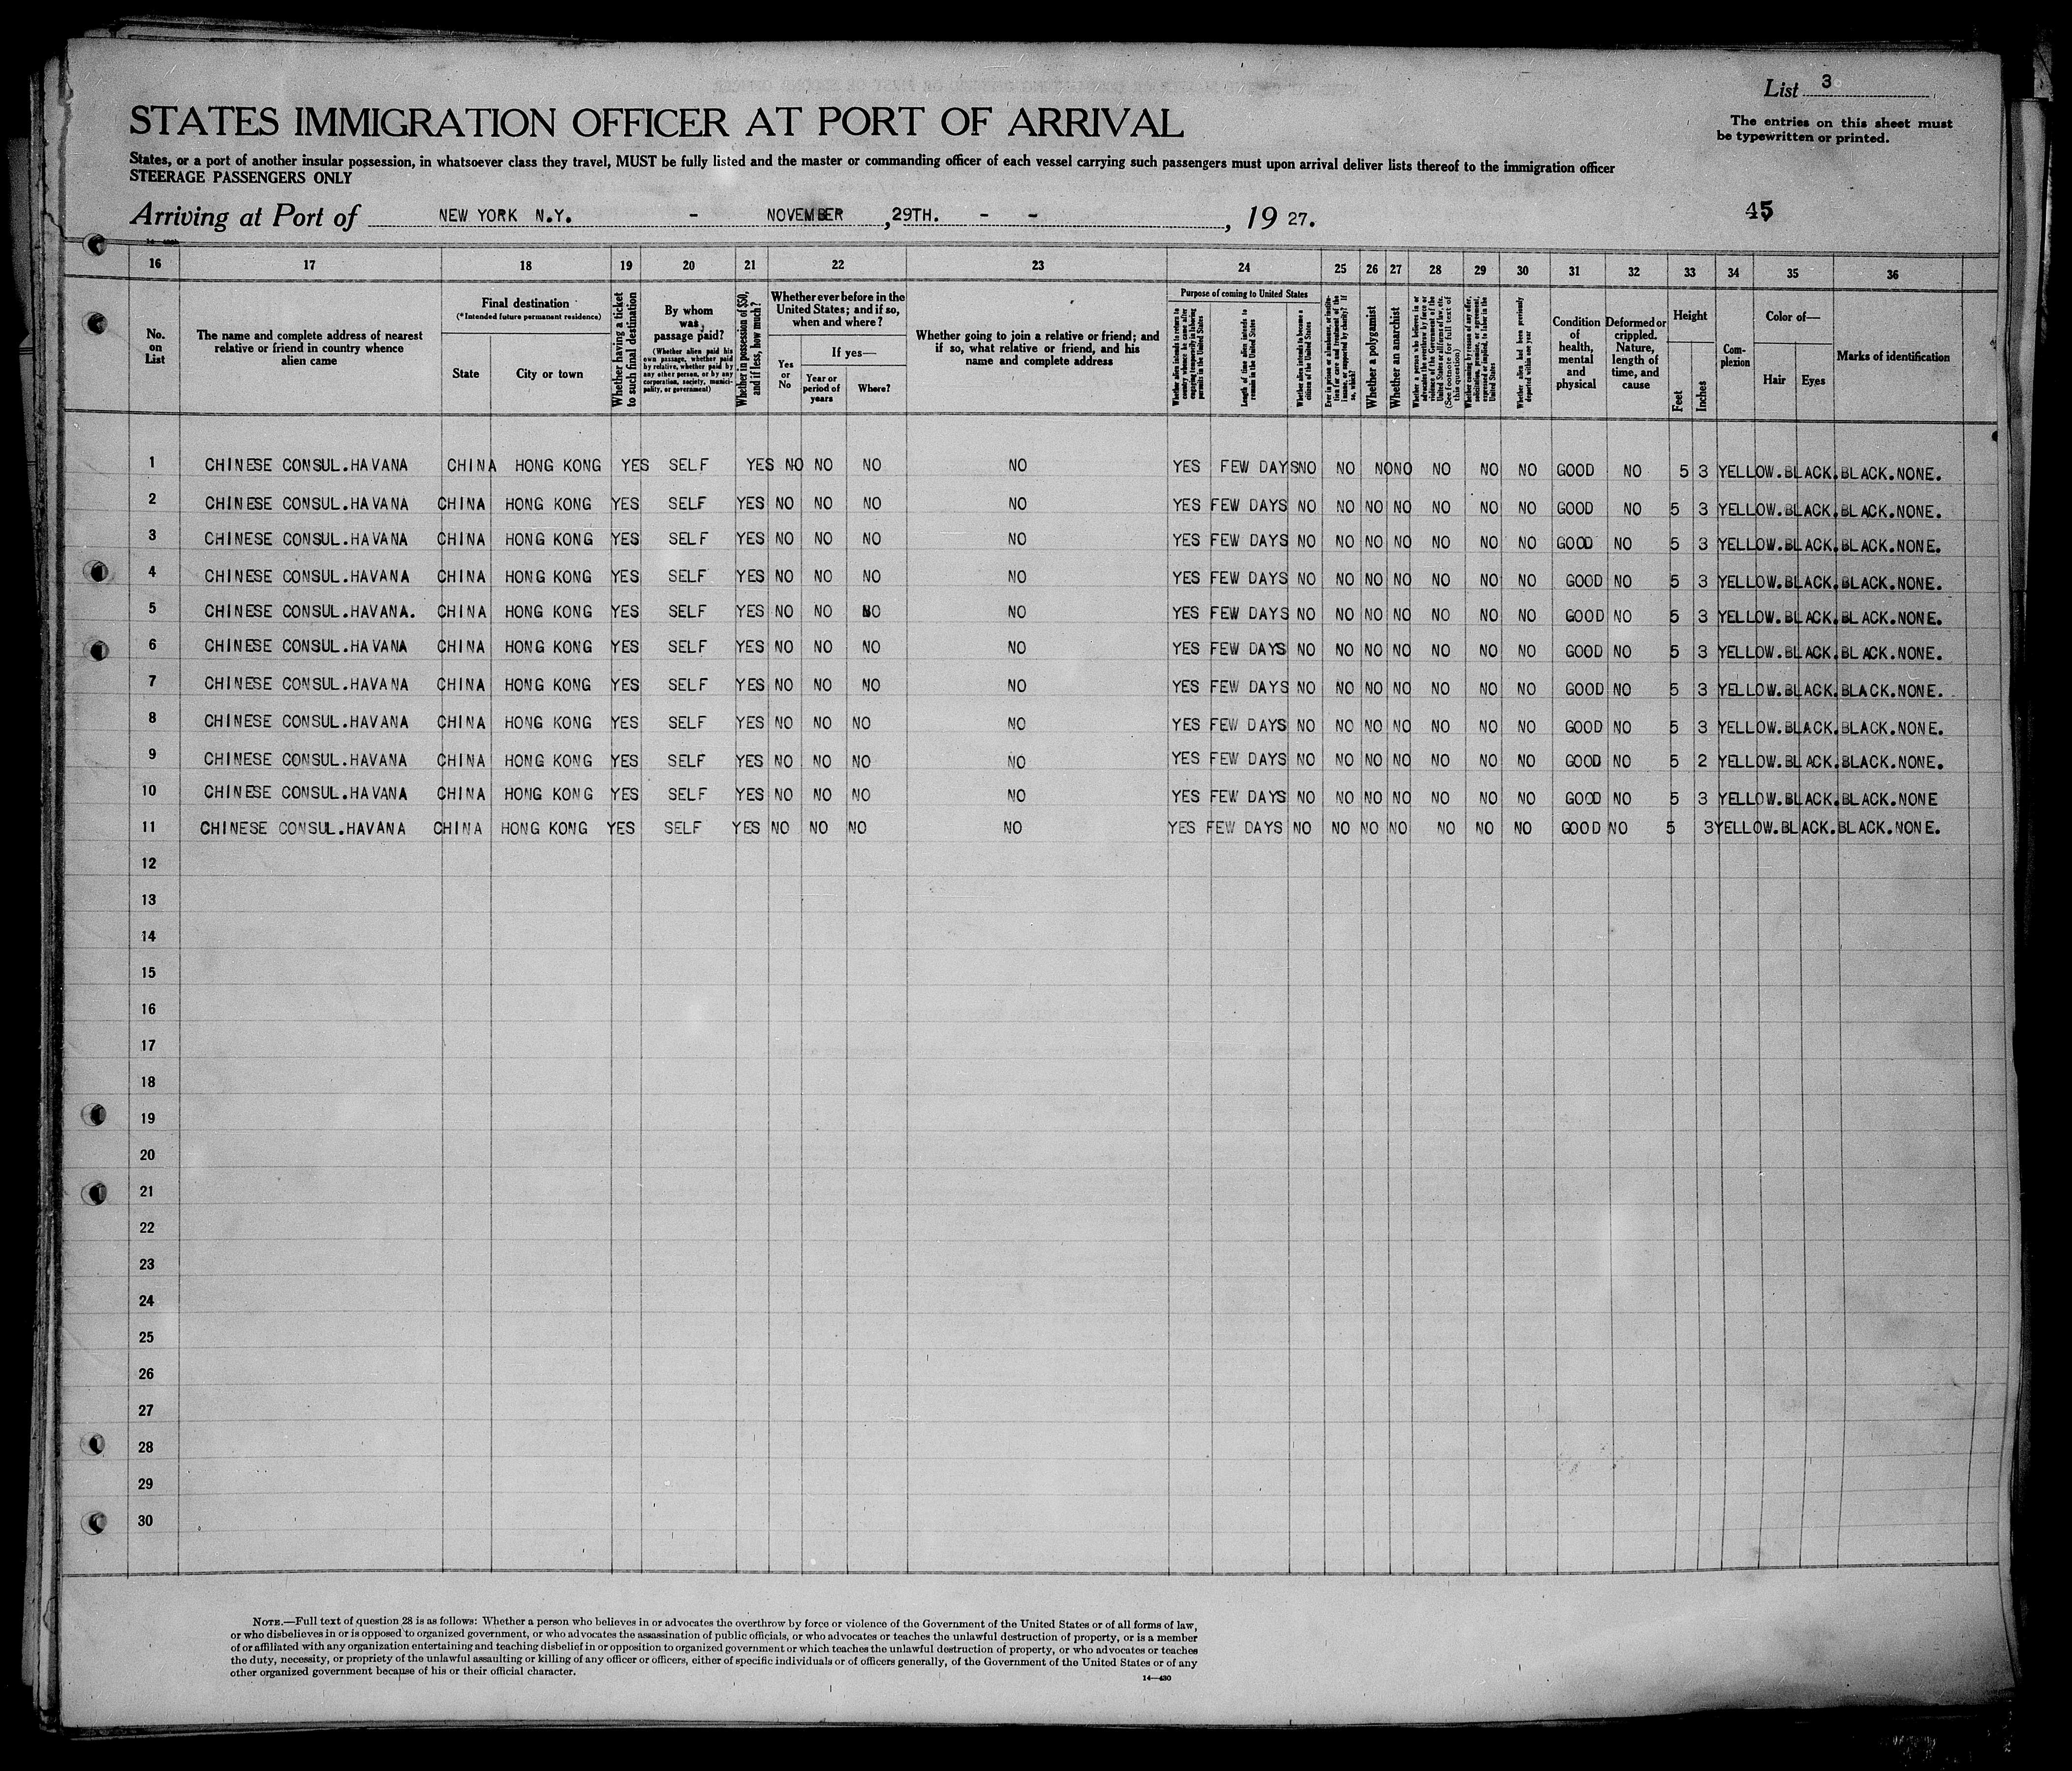 List 3
The entries on this sheet must
be typewritten or printed.
STATES IMMIGRATION OFFICER AT PORT OF ARRIVAL
States, or a port of another insular possession, in whatsoever class they travel, MUST be fully listed and the master or commanding officer of each vessel carrying such passengers must upon arrival deliver lists thereof to the immigration officer
STEERAGE PASSENGERS ONLY
Arriving at Port of NEW YORK N.Y. - NOVEMBER ,29TH. - - , 19 27.
45
16 17 18 19 20 21 22 23 24 25 26 27 28 29 30 31 32 33 34 35 36
No. on List
The name and complete address of nearest relative or friend in country whence alien came
Final destination
(*Intended future permanent residence)
State
City or town
Whether having a ticket to such final destination
By whom was passage paid?
(Whether alien paid his own passage, whether paid by relative, whether paid by any other person, or by any corporation, society, municipality, or government)
Whether in possession of $50, and if less, how much?
Whether ever before in the United States; and if so, when and where?
Yes or No
If yes—
Year or period of years
Where?
Whether going to join a relative or friend; and if so, what relative or friend, and his name and complete address
Purpose of coming to United States
Whether alien intends to return to country whence he came after engaging temporarily in laboring pursuits in the United States
Length of time alien intends to remain in the United States
Whether alien intends to become a citizen of the United States
Ever in prison or almshouse, or institution for care and treatment of the insane, or supported by charity? If so, which?
Whether a polygamist
Whether an anarchist
Whether a person who believes in or advocates the overthrow by force or violence of the Government of the United States or all forms of law, etc. (See footnote for full text of this question)
Whether coming by reason of any offer, solicitation, promise, or agreement, expressed or implied, to labor in the United States
Whether alien had been previously deported within one year
Condition of health, mental and physical
Deformed or crippled. Nature, length of time, and cause
Height
Feet
Inches
Complexion
Color of—
Hair
Eyes
Marks of identification
1 CHINESE CONSUL.HAVANA CHINA HONG KONG YES SELF YES NO NO NO NO YES FEW DAYS NO NO NO NO NO NO NO GOOD NO 5 3 YELLOW.BLACK.BLACK.NONE.
2 CHINESE CONSUL.HAVANA CHINA HONG KONG YES SELF YES NO NO NO NO YES FEW DAYS NO NO NO NO NO NO NO GOOD NO 5 3 YELLOW.BLACK.BLACK.NONE.
3 CHINESE CONSUL.HAVANA CHINA HONG KONG YES SELF YES NO NO NO NO YES FEW DAYS NO NO NO NO NO NO NO GOOD NO 5 3 YELLOW.BLACK.BLACK.NONE.
4 CHINESE CONSUL.HAVANA CHINA HONG KONG YES SELF YES NO NO NO NO YES FEW DAYS NO NO NO NO NO NO NO GOOD NO 5 3 YELLOW.BLACK.BLACK.NONE.
5 CHINESE CONSUL.HAVANA. CHINA HONG KONG YES SELF YES NO NO NO NO YES FEW DAYS NO NO NO NO NO NO NO GOOD NO 5 3 YELLOW.BLACK.BLACK.NONE.
6 CHINESE CONSUL.HAVANA CHINA HONG KONG YES SELF YES NO NO NO NO YES FEW DAYS NO NO NO NO NO NO NO GOOD NO 5 3 YELLOW.BLACK.BLACK.NONE.
7 CHINESE CONSUL.HAVANA CHINA HONG KONG YES SELF YES NO NO NO NO YES FEW DAYS NO NO NO NO NO NO NO GOOD NO 5 3 YELLOW.BLACK.BLACK.NONE.
8 CHINESE CONSUL.HAVANA CHINA HONG KONG YES SELF YES NO NO NO NO YES FEW DAYS NO NO NO NO NO NO NO GOOD NO 5 3 YELLOW.BLACK.BLACK.NONE.
9 CHINESE CONSUL.HAVANA CHINA HONG KONG YES SELF YES NO NO NO NO YES FEW DAYS NO NO NO NO NO NO NO GOOD NO 5 2 YELLOW.BLACK.BLACK.NONE.
10 CHINESE CONSUL.HAVANA CHINA HONG KONG YES SELF YES NO NO NO NO YES FEW DAYS NO NO NO NO NO NO NO GOOD NO 5 3 YELLOW.BLACK.BLACK.NONE
11 CHINESE CONSUL.HAVANA CHINA HONG KONG YES SELF YES NO NO NO NO YES FEW DAYS NO NO NO NO NO NO NO GOOD NO 5 3YELLOW.BLACK.BLACK.NONE.
12
13
14
15
16
17
18
19
20
21
22
23
24
25
26
27
28
29
30
NOTE.—Full text of question 28 is as follows: Whether a person who believes in or advocates the overthrow by force or violence of the Government of the United States or of all forms of law,
or who disbelieves in or is opposed to organized government, or who advocates the assassination of public officials, or who advocates or teaches the unlawful destruction of property, or is a member
of or affiliated with any organization entertaining and teaching disbelief in or opposition to organized government or which teaches the unlawful destruction of property, or who advocates or teaches
the duty, necessity, or propriety of the unlawful assaulting or killing of any officer or officers, either of specific individuals or of officers generally, of the Government of the United States or of any
other organized government because of his or their official character.
14—430